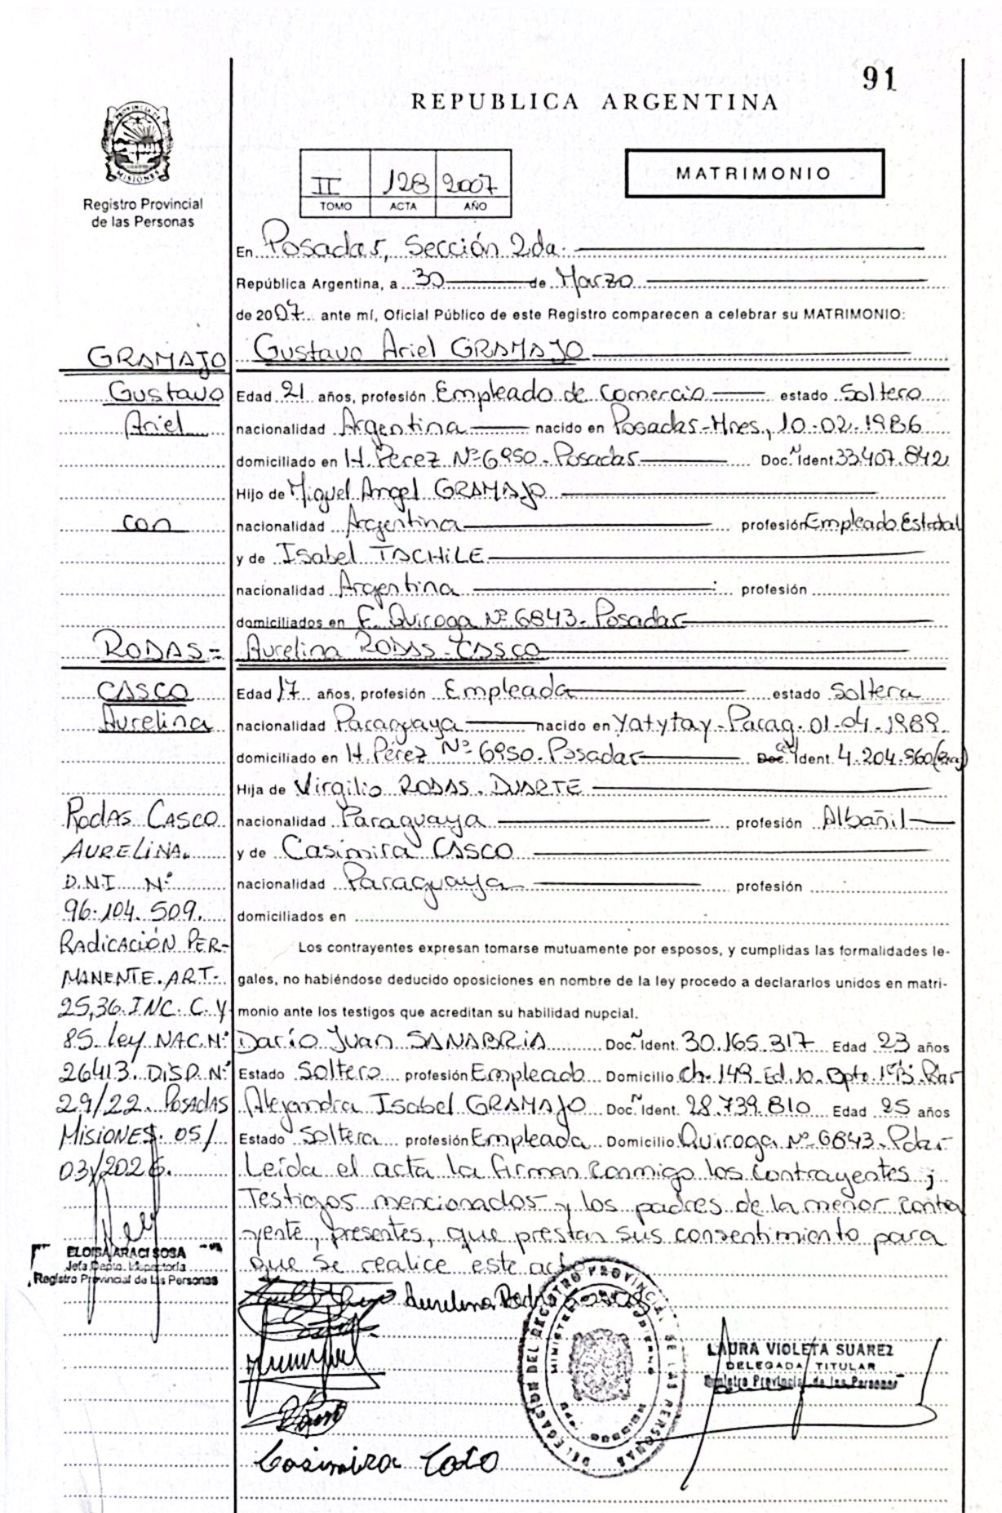 91
REPUBLICA ARGENTINA
PROVINCIA DE
MISIONES
Registro Provincial
de las Personas
II 128 2007
TOMO ACTA AÑO
MATRIMONIO
En Posadas, Sección 2da.
República Argentina, a 30 de Marzo
de 2007 ante mí, Oficial Público de este Registro comparecen a celebrar su MATRIMONIO:
GRAMAJO
Gustavo
Ariel
con
RODAS=
CASCO
Aurelina
Gustavo Ariel GRAMAJO
Edad 21 años, profesión Empleado de Comercio estado Soltero
nacionalidad Argentina nacido en Posadas-Mnes., 10-02-1986
domiciliado en H. Pérez Nº 6950-Posadas Doc. Ident 33.407.842
Hijo de Miguel Angel GRAMAJO
nacionalidad Argentina profesión Empleado Estatal
y de Isabel TACHILE
nacionalidad Argentina profesión
domiciliados en F. Quiroga Nº 6843-Posadas
Aurelina RODAS-CASCO
Edad 17 años, profesión Empleada estado Soltera
nacionalidad Paraguaya nacido en Yatytay-Parag. 01-04-1989.
domiciliado en H. Pérez Nº 6950-Posadas Doc. Ident. 4.204.960
Hija de Virgilio RODAS DUARTE
nacionalidad Paraguaya profesión Albañil
y de Casimira CASCO
nacionalidad Paraguaya profesión
domiciliados en
Los contrayentes expresan tomarse mutuamente por esposos, y cumplidas las formalidades le-
gales, no habiéndose deducido oposiciones en nombre de la ley procedo a declararlos unidos en matri-
monio ante los testigos que acreditan su habilidad nupcial.
Darío Juan SANABRIA Doc. Ident. 30.165.317 Edad 23 años
Estado Soltero profesión Empleado Domicilio Ch-149 Ed. 10.
Alejandra Isabel GRAMAJO Doc. Ident. 28.739.810 Edad 25 años
Estado Soltera profesión Empleada Domicilio Quiroga Nº 6843-Pdas-
Leída el acta la firman conmigo los contrayentes;
Testigos mencionados y los padres de la menor contra
yente, presentes, que prestan sus consentimiento para
que se realice este acto.
Rodas Casco
AURELINA.
D.N.I Nº
96.104.509.
RADICACIÓN PER-
MANENTE. ART.
25,36. INC. C. Y
85. Ley NAC. Nº
26413. DISP. Nº
29/22. POSADAS
MISIONES. 05/
03/2026.
ELOISA ARACI SOSA
Jefa Depto. Inspectoría
Registro Provincial de las Personas
Aurelina Rodas
Casimira
DELEGACIÓN DEL REGISTRO PROVINCIAL DE LAS PERSONAS
LAURA VIOLETA SUAREZ
DELEGADA TITULAR
Registro Provincial de las Personas